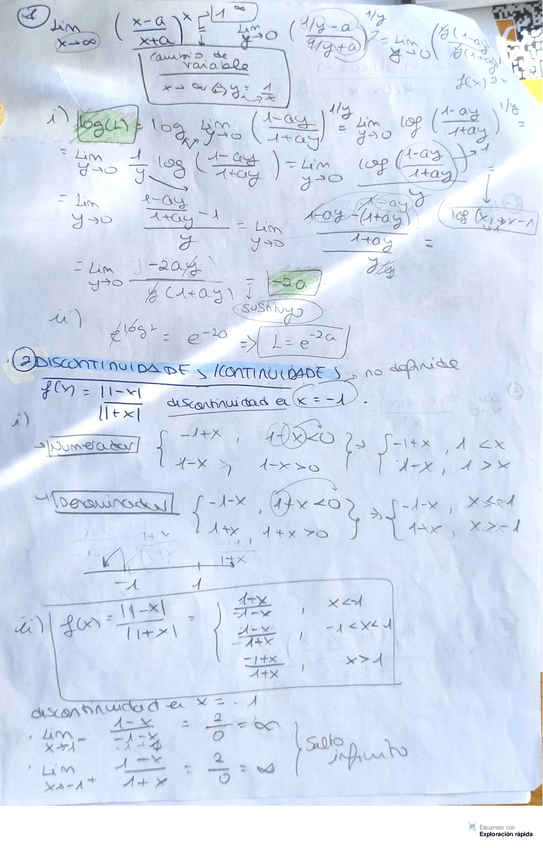 1 Lim x→∞ (x-a / x+a)^x = 1^∞ = Lim y→0 (1/y - a / 1/y + a)^1/y = Lim y→0
cambio de
variable
x→∞ y = 1/x
i) log(L) = log Lim y→0 (1-ay / 1+ay)^1/y = Lim y→0 log (1-ay / 1+ay)^1/y =
= Lim y→0 1/y log (1-ay / 1+ay) = Lim y→0 log (1-ay / 1+ay) / y
= Lim y→0 1-ay / 1+ay - 1 / y = Lim y→0 1-ay-(1+ay) / 1+ay / y =
log(x) → x-1
= Lim y→0 -2ay / y(1+ay) = -2a
sustituyo
ii) e^log L = e^-2a => L = e^-2a
2 DISCONTINUIDADES / CONTINUIDADES → no definida
f(x) = |1-x| / |1+x| discontinuidad en x = -1.
i)
→ Numerador { -1+x, 1-x<0 } => { -1+x, 1<x
1-x, 1-x>0 1-x, 1>x
→ Denominador { -1-x, 1+x<0 } => { -1-x, x<-1
1+x, 1+x>0 1+x, x>-1
-1 1
ii) f(x) = |1-x| / |1+x| = { x<-1
-1<x<1
-1+x / 1+x, x>1
discontinuidad en x = -1
· Lim x→-1^- 1-x / -1-x = 2/0 = ∞
· Lim x→-1^+ 1-x / 1+x = 2/0 = ∞
} Salto
infinito
Escaneer con
Exploración rápida